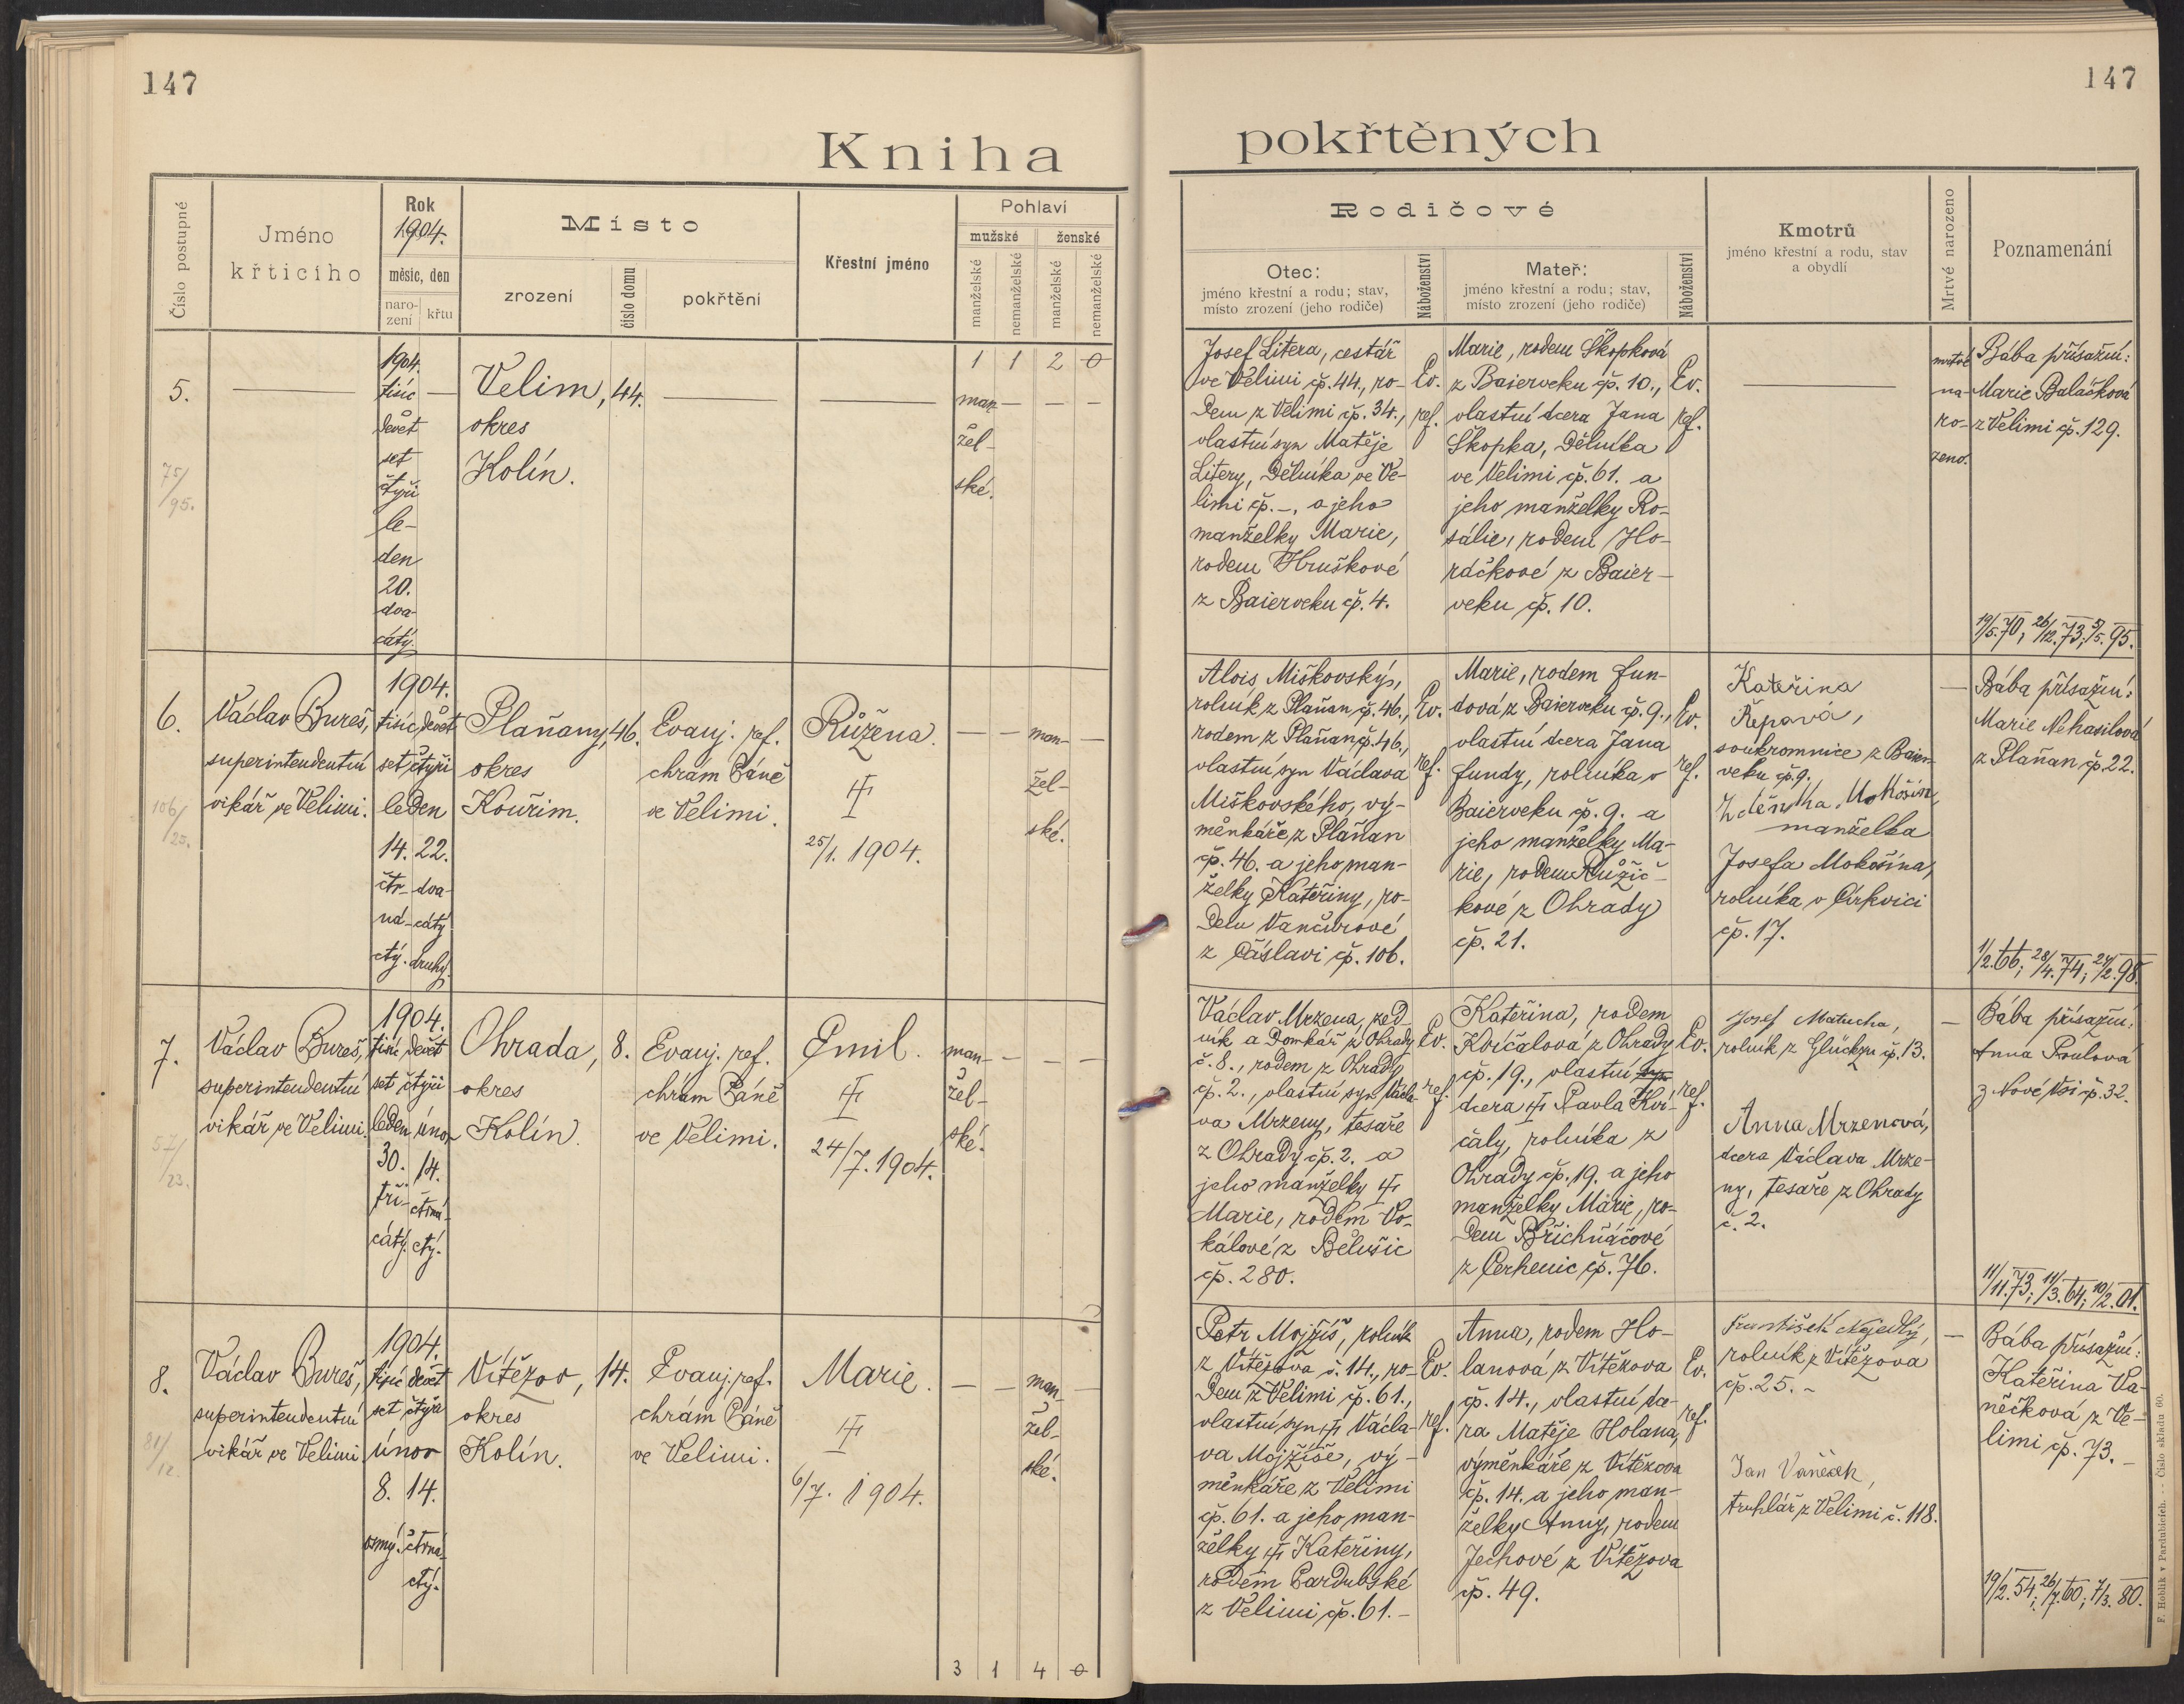 147
147
Kniha
pokřtěných
Číslo postupné
Jméno
křticího
Rok
1904.
měsíc, den
naro-
zení
křtu
Místo
zrození
číslo domu
pokřtění
Křestní jméno
Pohlaví
mužské
ženské
manželské
nemanželské
manželské
nemanželské
Rodičové
Otec:
jméno křestní a rodu; stav,
místo zrození (jeho rodiče)
Náboženství
Mateř:
jméno křestní a rodu; stav,
místo zrození (jeho rodiče)
Náboženství
Kmotrů
jméno křestní a rodu, stav
a obydlí
Mrtvé narozeno
Poznamenání
5.
75/95.
1904.
tisíc
devět
set
čtyři
le-
den
20.
dva-
cátý.
Velim, 44.
okres
Kolín.
1 1 2 0
man-
žel-
ské.
Josef Litera, cestář
ve Velimi čp. 44., ro-
dem z Velimi čp. 34.,
vlastní syn Matěje
Litery, dělníka ve Ve-
limi čp. -, a jeho
manželky Marie,
rodem Hruškové
z Baierveku čp. 4.
Ev.
ref.
Marie, rodem Škopková
z Baierveku čp. 10.,
vlastní dcera Jana
Škopka, dělníka
ve Velimi čp. 61. a
jeho manželky Ro-
sálie, rodem Ho-
ráčkové z Baier-
veku čp. 10.
Ev.
ref.
mrtvě
na-
ro-
zeno.
Bába přísažní:
Marie Baláčková
z Velimi čp. 129.
19/5. 70; 26/12. 73; 5/5. 95.
6.
106/25.
Václav Bureš,
superintendentní
vikář ve Velimi.
1904.
tisíc devět
set čtyři
leden
14. 22.
čtr- dva-
ná- cátý
ctý. druhý.
Plaňany, 46.
okres
Kouřim.
Evanj. ref.
chrám Páně
ve Velimi.
Růžena.
25/1. 1904.
man-
žel-
ské.
Alois Miškovský,
rolník z Plaňan čp. 46.,
rodem z Plaňan čp. 46.,
vlastní syn Václava
Miškovského, vý-
měnkáře z Plaňan
čp. 46. a jeho man-
želky Kateřiny, ro-
dem Vančurové
z Čáslavi čp. 106.
Ev.
ref.
Marie, rodem Fun-
dová, z Baierveku čp. 9.,
vlastní dcera Jana
Fundy, rolníka v
Baierveku čp. 9. a
jeho manželky Ma-
rie, rodem Růžič-
kové z Ohrady
čp. 21.
Ev.
ref.
Kateřina
Řepová,
soukromnice z Baier-
veku čp. 9.
Zdeňka Mokošín,
manželka
Josefa Mokošína,
rolníka v Církvici
čp. 17.
Bába přísažní:
Marie Nehasilová
z Plaňan čp. 22.
1/2. 66; 28/4. 74; 24/2. 98.
7.
57/23.
Václav Bureš,
superintendentní
vikář ve Velimi.
1904.
tisíc devět
set čtyři
leden únor
30. 14.
tři- čtrná-
cátý. ctý.
Ohrada, 8.
okres
Kolín.
Evanj. ref.
chrám Páně
ve Velimi.
Emil.
24/7. 1904.
man-
žel-
ské.
Václav Mrzena, zed-
ník a domkář z Ohrady
č. 8., rodem z Ohrady
čp. 2., vlastní syn Václa-
va Mrzeny, tesaře
z Ohrady čp. 2. a
jeho manželky
Marie, rodem Vo-
kálové z Bělušic
čp. 280.
Ev.
ref.
Kateřina, rodem
Kvíčalová z Ohrady
čp. 19., vlastní syn
dcera Pavla Kví-
čaly, rolníka z
Ohrady čp. 19. a jeho
manželky Marie, ro-
dem Břichňáčové
z Cerhenic čp. 76.
Ev.
ref.
Josef Matucha,
rolník z Glückzu čp. 13.
Anna Mrzenová,
dcera Václava Mrze-
ny, tesaře z Ohrady
č. 2.
Bába přísažní:
Anna Proulová
z Nové Vsi čp. 32.
11/11. 73; 11/3. 64; 10/2. 01.
8.
81/12.
Václav Bureš,
superintendentní
vikář ve Velimi
1904.
tisíc devět
set čtyři
únor
8. 14.
osmý. čtrná-
ctý.
Vítězov, 14.
okres
Kolín.
Evanj. ref.
chrám Páně
ve Velimi.
Marie.
6/7. 1904.
man-
žel-
ské.
Petr Mojžíš, rolník
z Vítězova č. 14., ro-
dem z Velimi čp. 61.,
vlastní syn Václa-
va Mojžíše, vý-
měnkáře z Velimi
čp. 61. a jeho man-
želky Kateřiny,
rodem Pardubské
z Velimi čp. 61.-
Ev.
ref.
Anna, rodem Ho-
lanová z Vítězova
čp. 14., vlastní dce-
ra Matěje Holana,
výměnkáře z Vítězova
čp. 14. a jeho man-
želky Anny, rodem
Jechové z Vítězova
čp. 49.
Ev.
ref.
František Nejedlý,
rolník z Vítězova
čp. 25. -
Jan Vaněček,
truhlář z Velimi č. 118.
Bába přísažní:
Kateřina Va-
něčková z Ve-
limi čp. 73.-
19/2. 54; 26/7. 60; 7/3. 80.
3 1 4 0
F. Hoblík v Pardubicích. -- Číslo skladu 60.